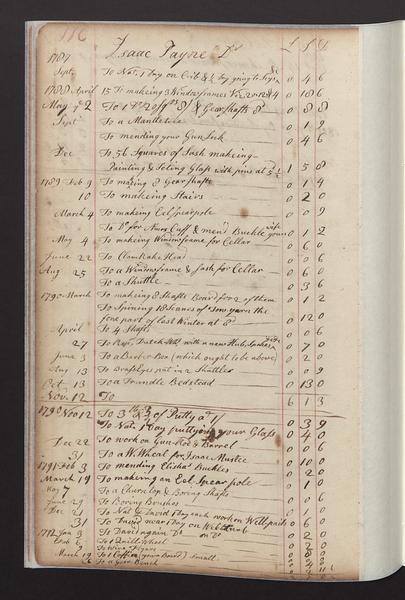 116
Isaac Payne Dr
L S D
1787
Sept To Nat. 1 Day on Crib & by going to 0 4 6
1788 April 15 To makeing 3 Windowframes 0 10 6
May 2 To 8 Gearshafts 8 0 8 8
Sept To a Mantletree 0 1 9
To mending your Gun Lock 0 4 6
Dec To 56 Squares of Sash makeing
Painting & Seting Glass with pins at 1 5 8
1789 Feb 9 To making 8 Gearshafts 0 1 4
10 To makeing Stairs 0 2 0
March 4 To making Eel spear pole 0 0 9
To Do for Cuff & mend Buckle 0 1 2
May 4 To making Windowframe for Cellar 0 6 0
June 22 To Clamrake Head 0 0 6
Aug 25 To a Windowframe & Sash for Cellar 0 6 0
To a Shuttle 0 3 6
1790 March To making 8 Shafts Board for 2 of them 0 1 2
To Spining 18 Scanes of Tow yarn the
fore part of last Winter at 8d 0 12 0
April To 4 Shafts 0 0 6
27 To Repr Dutch Whl with a new Hub, Spokes 0 7 0
June 3 To a Barber Box (which ought to be above) 0 2 0
Aug 13 To Brass Eyes put in 2 Shuttles 0 0 9
Oct 13 To a Trundle Bedstead 0 13 0
Nov. 12 To 6 1 3
1790 Nov 12 To 3 lb of Putty a 1/ 0 3 9
To Nat. 1 Day puttying your Glass 0 4 0
Dec 22 To work on Gun-Rod & Barrel 0 0 6
31 To a W. Wheal for Isaac Mustee 0 10 0
1791 Feb 3 To mending Elisha's Buckles 0 2 0
March 19 To makeing an Eel Spear pole 0 1 0
May 7 To a Churn top & Boring Shafts 0 0 6
June 29 To Boring Brushes
Dec 21 To Nat & David 1 Day each work on Well path 0 6 0
31 To David near 1 Day on Well Curb 0 2 0
1792 Jan 3 To David again Do on Do
Feb 6 To 1 Quill Wheel
March 19 To 1 Coffin (your Board) Small
To a Gear Bench